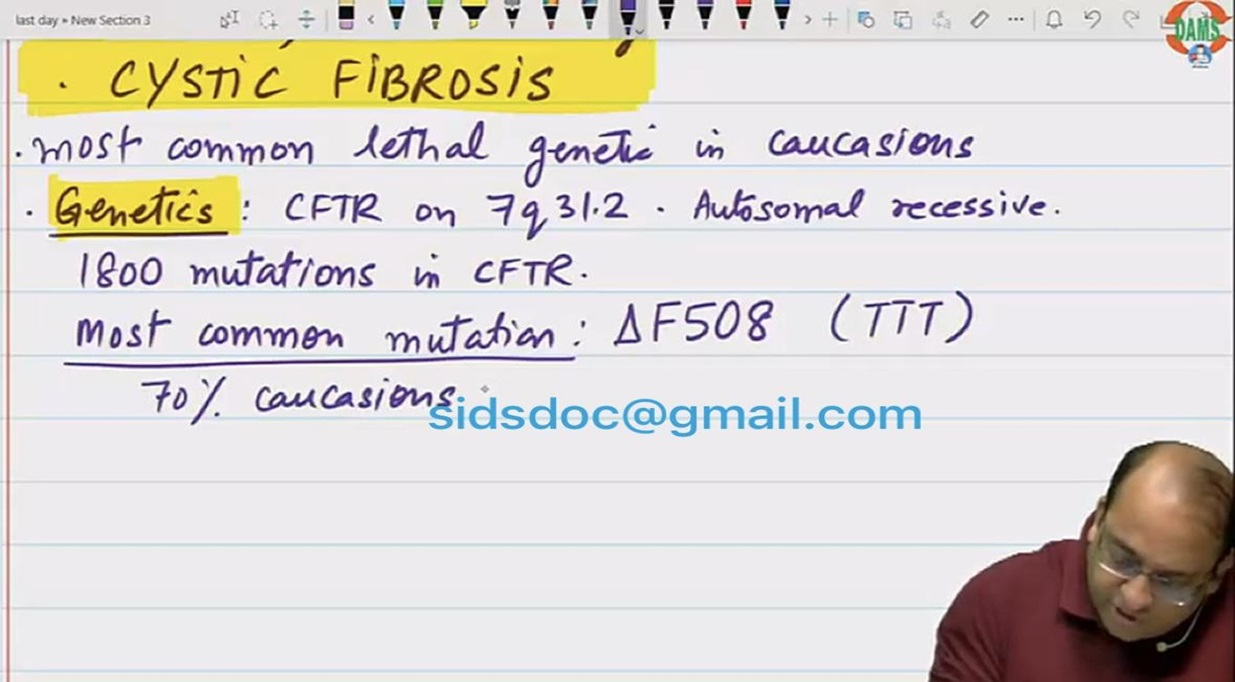 last day » New Section 3
DAMS
. CYSTIC FIBROSIS
. most common lethal genetic in caucasions
. Genetics : CFTR on 7q31.2 . Autosomal recessive.
1800 mutations in CFTR.
Most common mutation : ΔF508 (TTT)
70% caucasions
sidsdoc@gmail.com